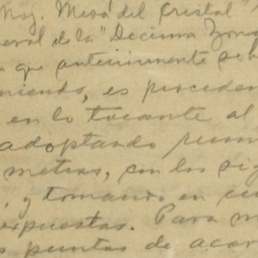 Noy. Mesa del Cristal"
neral de la "Decima Zona
a que anteriormente se h
niendo, es proceden
en lo tocante al
adoptando
metras, con los sig
, y tomando en cu
xpuestas. Para m
s puntas de acer